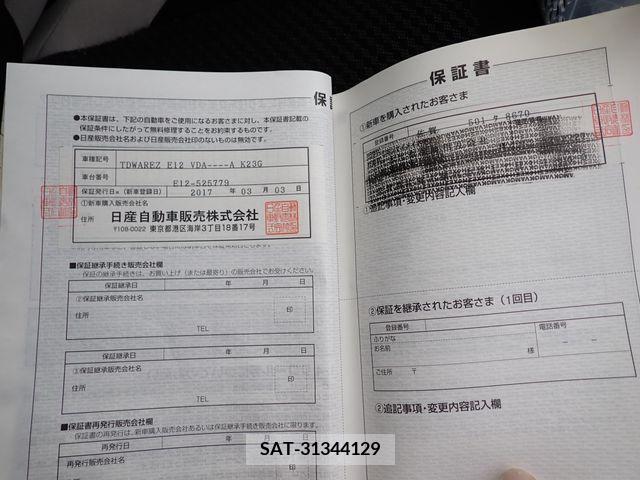 保
●本保証書は、下記の自動車をご使用になるお客さまに対し、本保証書記載の
保証条件にしたがって無料修理することをお約束するものです。
●日産販売会社名および日産販売会社印のないものは無効です。
車種記号 TDWAREZ E12 VDA----A K23G
車台番号 E12-525779
保証発行日※(新車登録日) 2017 年 03 月 03 日
①新車購入販売会社名
日産自動車販売株式会社
住所 〒108-0022 東京都港区海岸3丁目18番17号
■保証継承手続き販売会社欄
保証の継承手続きは、お買い上げ(または最寄り)の販売会社でお受けください。
保証継承日 年 月 日
②保証継承販売会社名
印
住所
TEL
保証継承日 年 月 日
③保証継承販売会社名
印
住所
TEL
■保証書再発行販売会社欄
保証書の再発行は、新車購入販売会社あるいは保証継承手続き販売会社に限ります。
再発行日 年 月 日
再発行販売会社名
印
保証書
①新車を購入されたお客さま
登録番号 佐賀 501 タ 8670
①追記事項・変更内容記入欄
②保証を継承されたお客さま(1回目)
登録番号
電話番号
ふりがな
お名前 様
－ －
ご住所 〒
②追記事項・変更内容記入欄
SAT-31344129